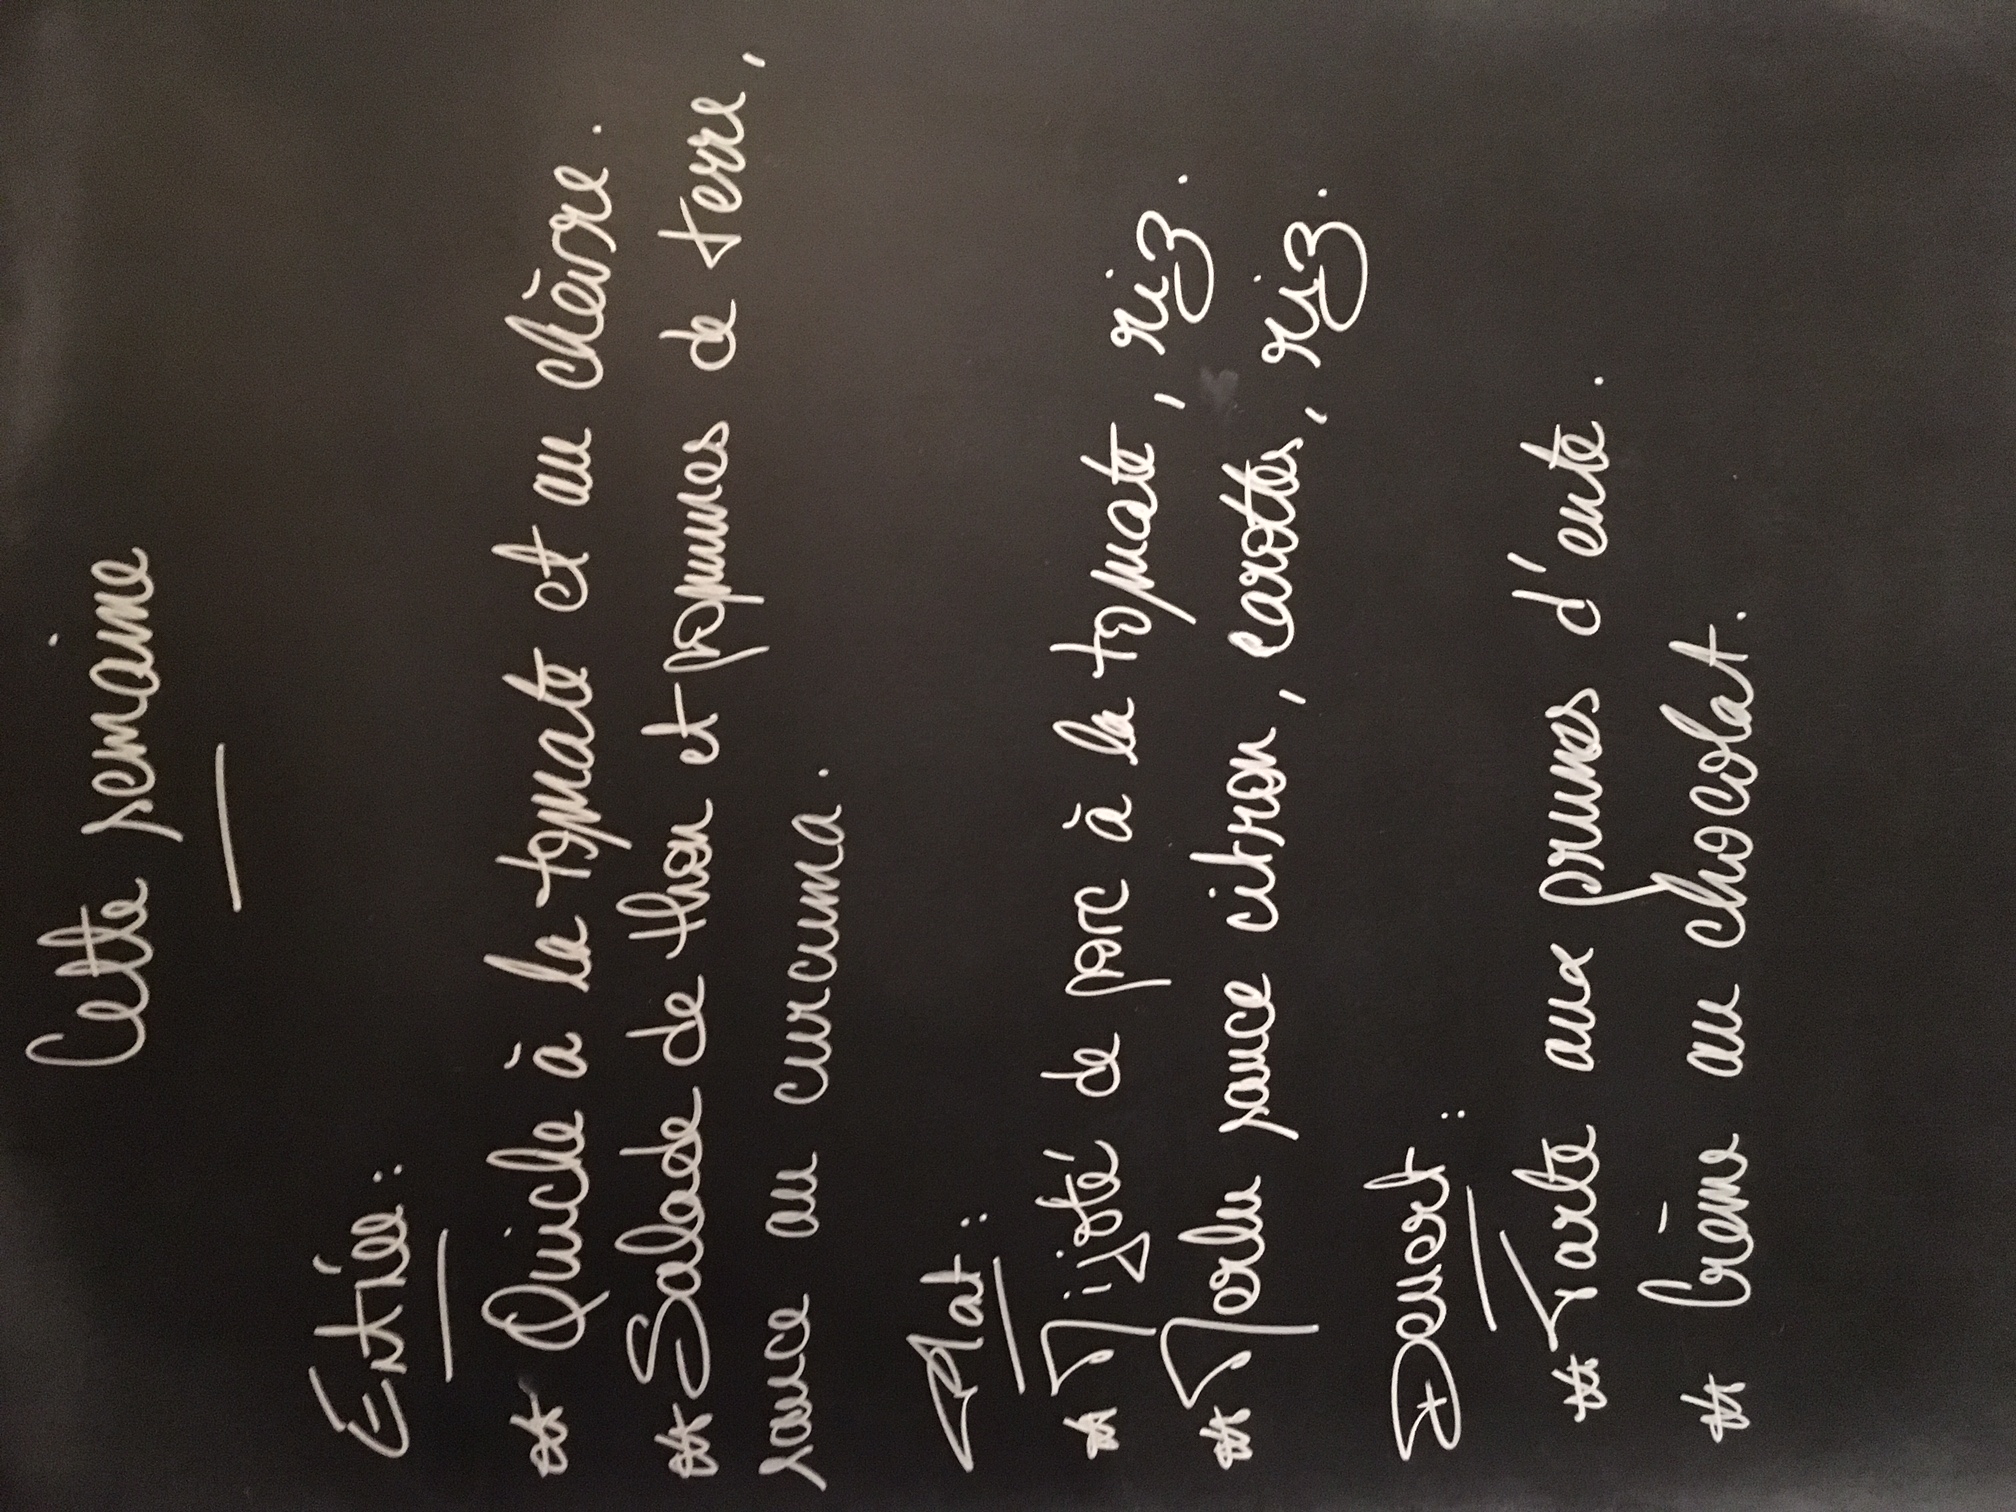 Cette semaine
Entrée :
* Quiche à la tomate et au chèvre.
* Salade de thon et pommes de terre,
sauce au curcuma.
Plat :
* Mijoté de porc à la tomate, riz.
* Merlu sauce citron, carottes, riz.
Dessert :
* Tarte aux prunes d'ente.
* Crème au chocolat.